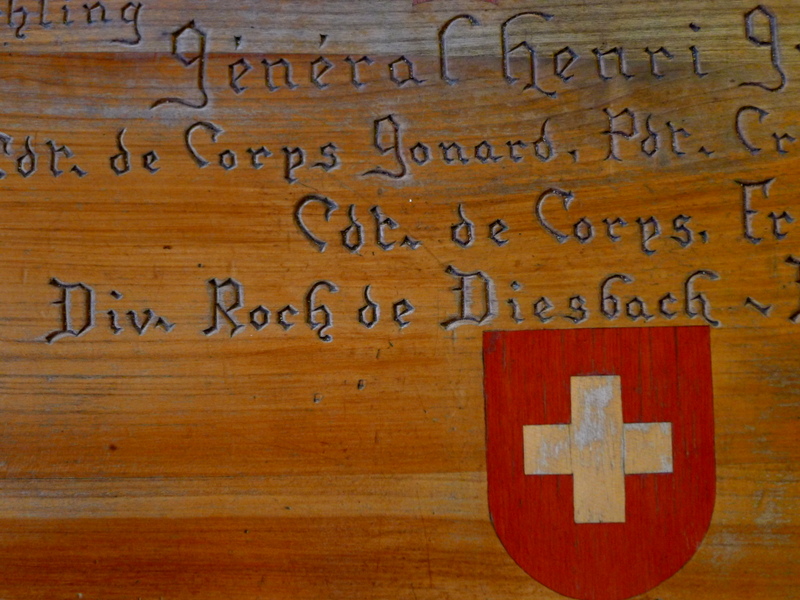 hling
Général Henri G
Cdt. de Corps Gonard. Pdt. Cr
Cdt. de Corps. Er
Div. Roch de Diesbach ~